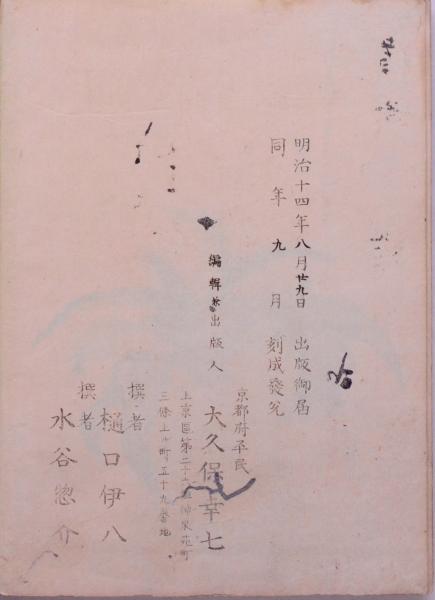 明治十四年八月廿九日 出版御届
同年九月 刻成發兌
編輯兼出版人
京都府平民
大久保幸七
上京區第二十六組神泉苑町
三條上ル町五十九番地
撰者 樋口伊八
撰者 水谷惣介